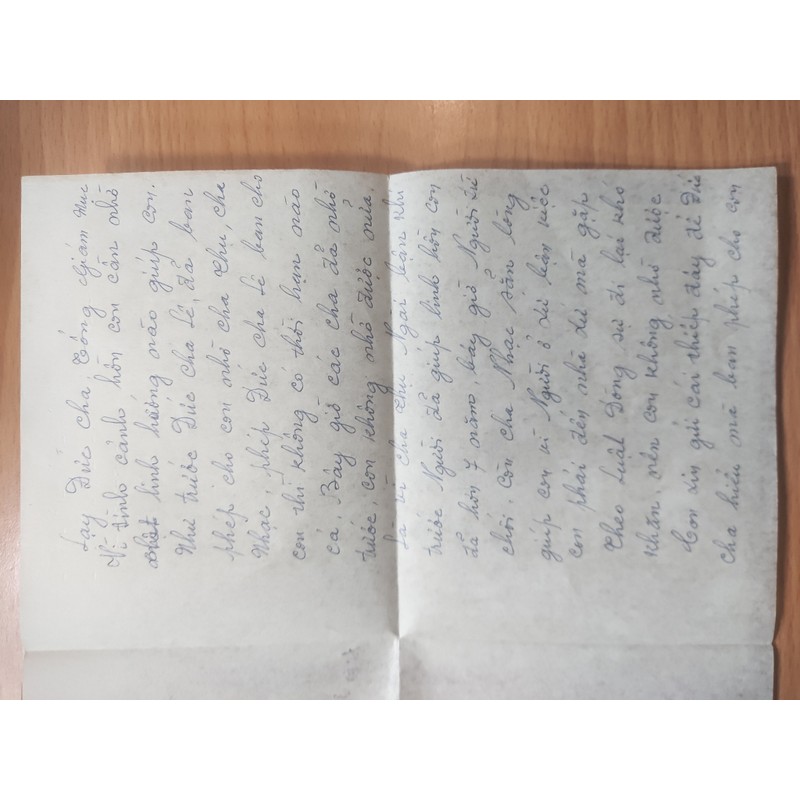 Lạy Đức cha Tổng Giám mục
Vì tình cảnh hồn con cần nhờ
linh hướng nào giúp con.
Như trước Đức cha Lê, đã ban
phép cho con nhờ cha Thụ, cha
Nhạc, phép Đức cha Lê ban cho
con thì không có thời hạn nào
cả. Bây giờ các cha đã nhờ
trước, con không nhờ được nữa.
Là vì cha Thụ Ngài bận khi
trước Người đã giúp linh hồn con
đã hơn 7 năm, bây giờ Người từ
chối, còn cha Nhạc sẵn lòng
giúp con vì Người ở xứ bận việc
con phải đến nhà xứ mà gặp
theo Luật Dòng sự đi lại khó
khăn, nên con không nhờ được
Con xin gửi cái thiếp đây để Đức
cha hiểu mà ban phép cho con